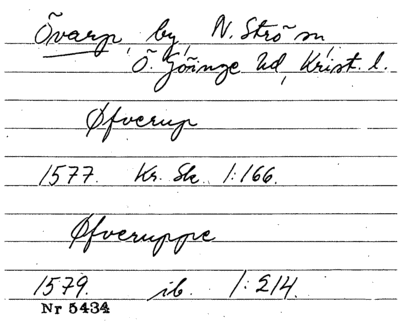 Övarp, by, N. Strö sn,
Ö. Göinge hd, Krist. l.
Øfverup
1577. Kr. Sk. 1:166.
Øfveruppe
1579. ib. 1:214.
Nr 5434